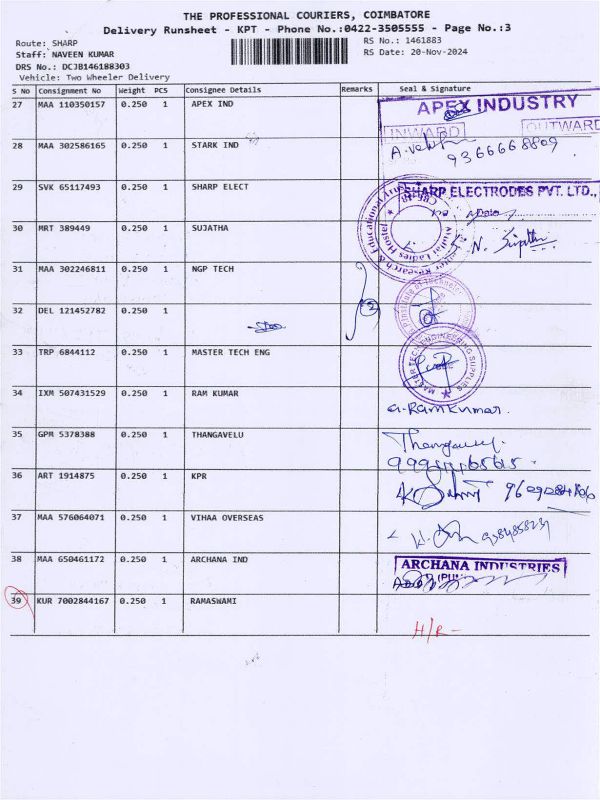 THE PROFESSIONAL COURIERS, COIMBATORE
Delivery Runsheet - KPT - Phone No.:0422-3505555 - Page No.:3
Route: SHARP
RS No.: 1461883
Staff: NAVEEN KUMAR
RS Date: 20-Nov-2024
DRS No.: DCJB146188303
Vehicle: Two Wheeler Delivery
S No Consignment No Weight PCS Consignee Details Remarks Seal & Signature
27 MAA 110350157 0.250 1 APEX IND
APEX INDUSTRY
INWARD OUTWARD
28 MAA 302586165 0.250 1 STARK IND
9366668809
29 SVK 65117493 0.250 1 SHARP ELECT
SHARP ELECTRODES PVT. LTD.,
30 MRT 389449 0.250 1 SUJATHA
N. Sujatha
31 MAA 302246811 0.250 1 NGP TECH
32 DEL 121452782 0.250 1
2
33 TRP 6844112 0.250 1 MASTER TECH ENG
MASTER TECH ENGINEERING SUPPLIES
34 IXM 507431529 0.250 1 RAM KUMAR
a. Ramkumar.
35 GPM 5378388 0.250 1 THANGAVELU
36 ART 1914875 0.250 1 KPR
37 MAA 576064071 0.250 1 VIHAA OVERSEAS
38 MAA 650461172 0.250 1 ARCHANA IND
ARCHANA INDUSTRIES
39 KUR 7002844167 0.250 1 RAMASWAMI
H/R-